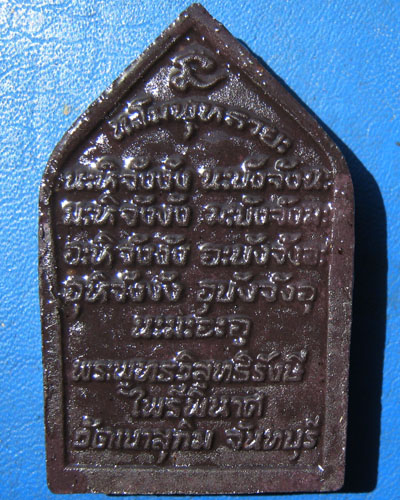 นโมพุทธายะ
นะหิจังงัง นะบังจังนะ
มะหิจังงัง มะบังจังมะ
อะหิจังงัง อะบังจังอะ
อุหิจังงัง อุบังจังอุ
นะมะอะอุ
พระพุทธวิสุทธิรังษี
ไพรีพินาศ
วัดเขาสุกิม จันทบุรี